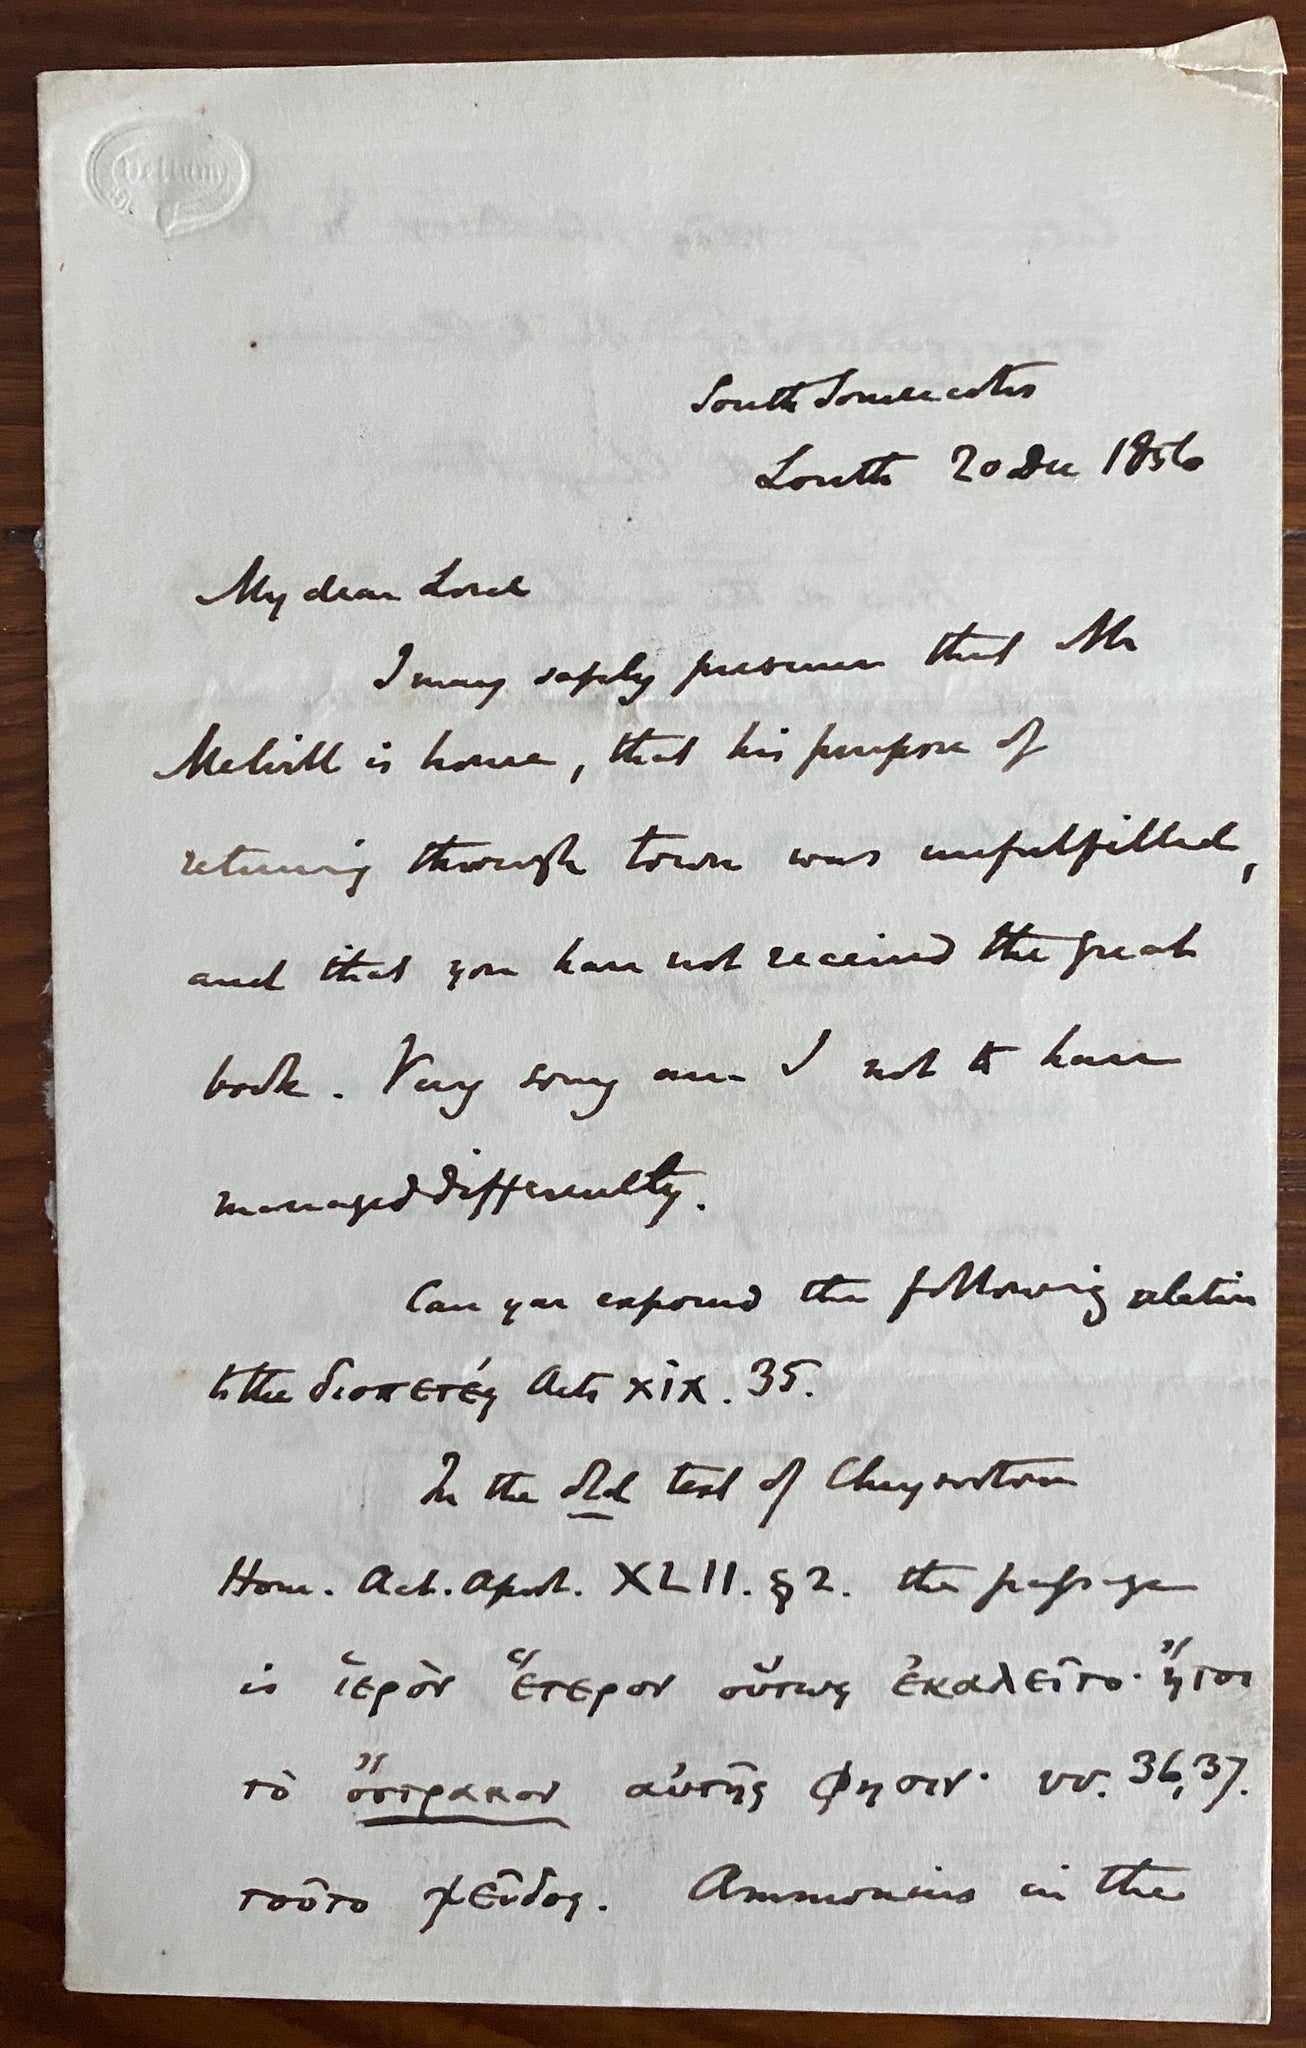 South Somercotes
Louth 20 Dec 1856
My dear Lord
I may safely presume that Mr
Melvill is home, that his purpose of
returning through town was unfulfilled,
and that you have not received the great
book. Very sorry am I not to have
managed differently.
Can you expound the following relative
to the διοπετές Acts XIX. 35.
In the old text of Chrysostom
Hom. Act. Apost. XLII. § 2. the passage
is ἱερὸν ἕτερον οὕτως ἐκαλεῖτο· ἤτοι
τὸ ὄστρακον αὐτῆς φησιν· vv. 36, 37.
τοῦτο ψεῦδος. Ammonius in the